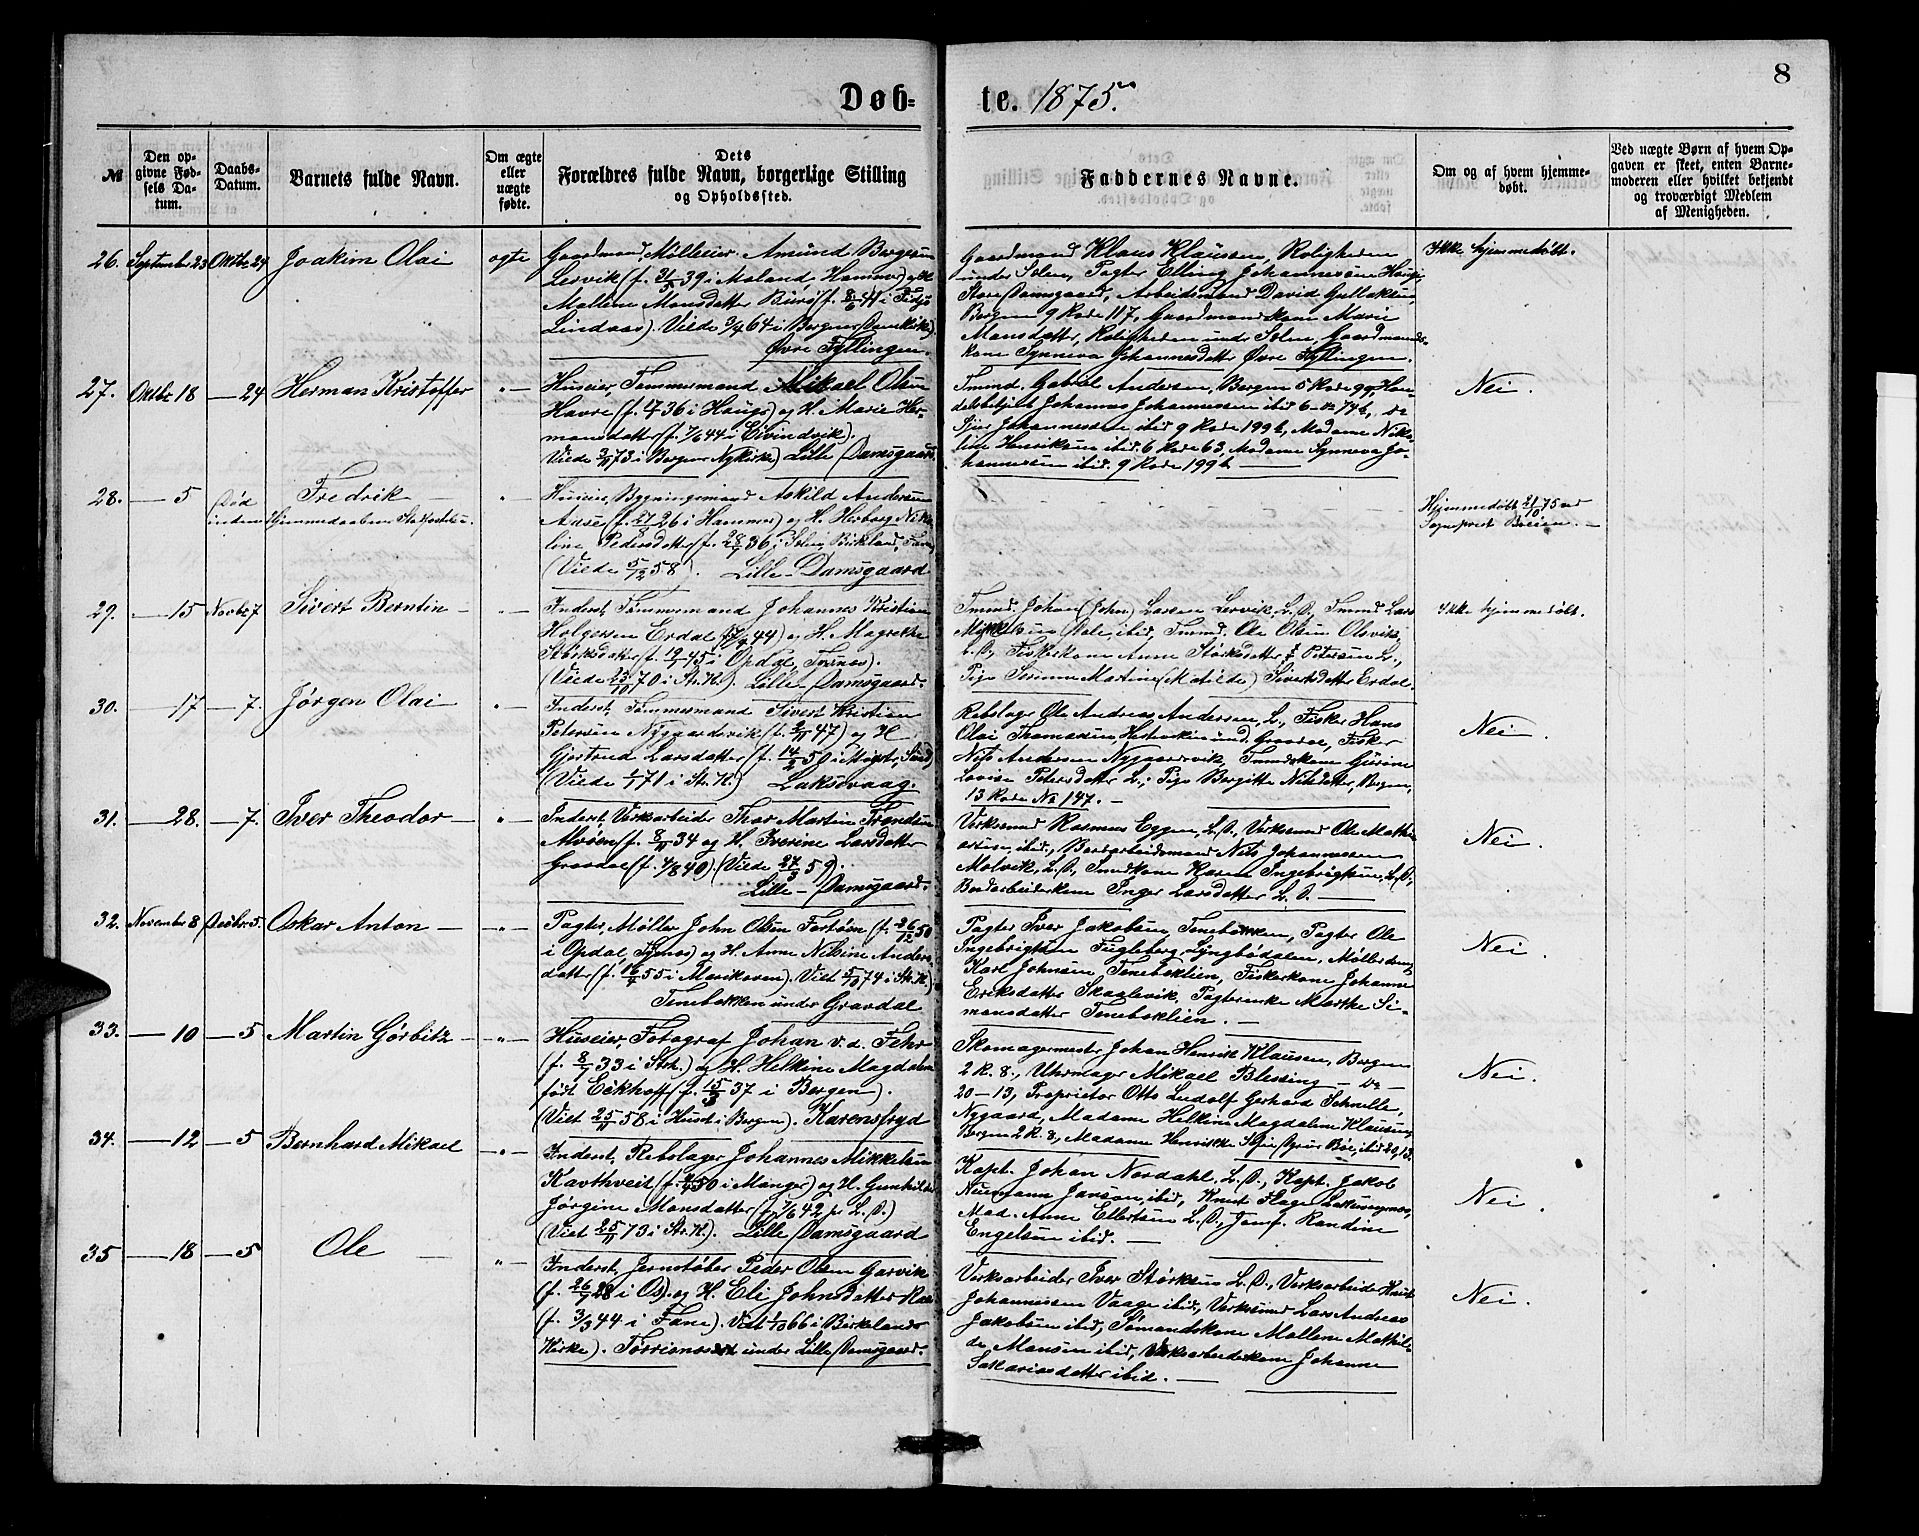 8
Døb= te. 1875.
№
Den op-
givne Fød-
sels Da-
tum.
Daabs-
Datum.
Barnets fulde Navn.
Om ægte
eller
uægte
fødte.
Dets
Forældres fulde Navn, borgerlige Stilling
og Opholdssted.
Faddernes Navne.
Om og af hvem hjemme-
døbt.
Ved uægte Børn af hvem Op-
gaven er skeet, enten Barne-
moderen eller hvilket bekjendt
og troværdigt Medlem
af Menigheden.
26. September 23 Oktbr 24 Joakim Olai ægte
Gaardmand, Mølleeier Amund Børgesen
Lervik (f. 39 i Moland, Hammer) og H.
Malene Monsdatter
Lindaas). Viede 64 i Bergens Domkirke).
Øvre Fyllingen.
Gaardmand Klaus Klausen, Roligheden
under Solem, Pagter Elling Johannesen Haugs,
Store Damsgaard, Arbeidsmand David Gullaksen
Bergen 9 Rode 117, Gaardmandskone Marie
Monsdatter, Roligheden und. Solem, Gaardmands-
kone Synneva Johannesdatter Øvre Fyllingen.
Ikke hjemmedøbt.
27. Oktbr 18 — 24 Herman Kristoffer " —
Huseier, Tømmermand Mikael Olsen
Havre (f. 36 i Haugs) og H. Marie Her-
mansdatter (f. 44 i Eivindvik).
Viede 73 i Bergens Nykirke) Lille Damsgaard.
Tmmd. Gabriel Andersen, Bergen 5 Rode 99, Han-
delsbetjent Johannes Johannessen ibid 6 — 74b,
Johannessen ibid 9 Rode 199b, Madame Niko-
line Henriksen ibid. 6 Rode 63, Madame Synneva Jo-
hannessen ibid. 9 Rode 199b
Nei.
28. — 5 Død
inden Fredrik —
Hjemmedaabens Stadfæstelse. " —
Huseier, Bygningsmand Askild Andersen
Aase (f. 27 26 i Hammer) og H. Herborg Niko-
line Pedersdatter (f. 28 36 i Solem, Birkeland, Fane)
(Viede 5/12 58). Lille-Damsgaard
Hjemmedøbt 21/10 75 ved
Sognepræst Breien. —
29. — 15 Novbr 7 Sivert Berntin — " —
Inderst, Tømmermand Johannes Kristian
Holgersen Erdal (f. 44) og H. Magrethe
Størksdatter (f. 19 45 i Opdal, Tysnes).
(Viede 23/10 70 i Str. K.). Lille-Damsgaard.
Tmmd. Johan (John) Larsen Lervik, L.D., Tmmd Lars
Mikkelsen ibid, Tmmd. Ole Olsen Olsvik,
L.D., Fiskerkone Anne Størksdatter Petersen L.,
Pige Serinne Martine (Matilde) Sivertsdatter Erdal.
Ikke hjemmedøbt.
30. — 17 — 7. Jørgen Olai " —
Inderst, Tømmermand Sivert Kristian
Petersen Nygaardsvik (f. 2/11 47) og H.
Gjertrud Larsdatter (f. 14/2 50 i
(Viede 71 i Str. K.) Laksevaag.
Rebslager Ole Andreas Andersen, L., Fisker Hans
Olai Thomassen, und. Gravdal, Fisker
Nils Andersen Nygaardsvik, Tmmdskone Gurine
Lovise Petersdatter L., Pige Bergitte Nilsdatter, Bergen,
13 Rode No 147. —
Nei.
31. — 28. — 7. Iver Theodor — " —
Inderst, Verksarbeider Thor Martin Trondsen
Alvøen (f. 8/11 34 og H. Iverine Larsdatter
Gravdal (f. 1/8 40). (Viede 27 59).
Lille — Damsgaard.
Verksmd Rasmus Eggen, L.D., Verksmd Ole Mathi-
asen, ibid., Bordarbeidsmand Nils Johannessen
Molvik, L.D., Smedkone Karen Ingebrigtsen, L.D.,
Bordarbeiderkone Inger Larsdatter L.D. —
Nei.
32. November 8 Decbr. 5. Oskar Anton — " —
Pagter, Møller John Olsen Fortøm (f. 26/12 50
i Opdal, Tysnes) og H. Anne Nilsine Anders-
datter (f. 16 55 i Manikoven). Viet 5 74 i Str. K.)
Tenebekken under Gravdal
Pagter Iver Jakobsen, Tenebekken, Pagter Ole
Ingebrigtsen Fugleberg, Lyngbødalen, Møllerdreng
Karl Johnsen Tenebeklien, Fiskerkone Johanne
Eriksdatter Skaalevik, Pagterenke Marthe Si-
monsdatter Tenebeklien. —
Nei
33. — 10 — 5 Martin Görbitz — " —
Huseier, Fotograf Johan v. d. Fehr
(f. 8 33 i Str.) og H. Helkine Magdalene
født Eckhoff (f. 15 37 i Bergen).
(Viet 25 58 i Huset i Bergen). Karensfryd
Skomagermester Johan Henrik Klausen, Bergen
2 R. 8., Uhrmager Mikael Blessing —
20 — 13, Proprietær Otto Ludolf Gerhard Schnelle,
Nygaard, Madame Helkine Magdalene Klausen,
Bergen 2 R. 8., Madame Henrikke Bøe, ibid 20, 13.
Nei.
34. — 12 — 5 Bernhard Mikael — " —
Inderst, Rebslager Johannes Mikkelsen
Kavthveit (f. 50 i Manger) og H. Gunhilde
Jørgine Monsdatter (f. 1/6 42 L.D.)
(Viet 25/11 73 i Str. K.). Lille Damsgaard
Kapt. Johan Nordahl. L.D., Kapt. Jakob
Neumann Janson, ibid, Knut Hage Laksevognes,
Mad. Anne Ellertsen L.D., Jomf. Randine
Engelsen ibid. —
Nei.
35 — 18 — 5 Ole — " —
Inderst, Jernstøber Peder Olsen Garvik
(f. 26 28 i Os) og H. Eli Johnsdatter
(f. 3/3 44 i Fane). Viet 1/10 66 i Birkelands
Kirke). under Lille Damsgaard.
Verksarbeider Iver Størksen L.D., Verksarbeider Knut
Johannessen Vaage ibid, Verksmd Lars Andreas
Jakobsen ibid, Sømandskone Mallene Mathil-
de Monsen ibid, Verksarbeiderkone Johanne
Sakariasdatter ibid. —
Nei.